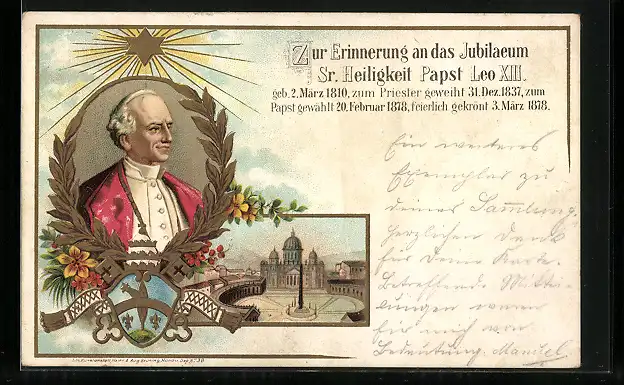 Zur Erinnerung an das Jubilaeum
Sr. Heiligkeit Papst Leo XIII.
geb. 2. März 1810, zum Priester geweiht 31. Dez. 1837, zum
Papst gewählt 20. Februar 1878, feierlich gekrönt 3. März 1878.
Ein weiteres
Exemplar zu
deiner Sammlung.
Herzlichen Dank
für Deine Karte.
Betreffende Mittei-
lungen waren
für mich von
Bedeutung. Manuel